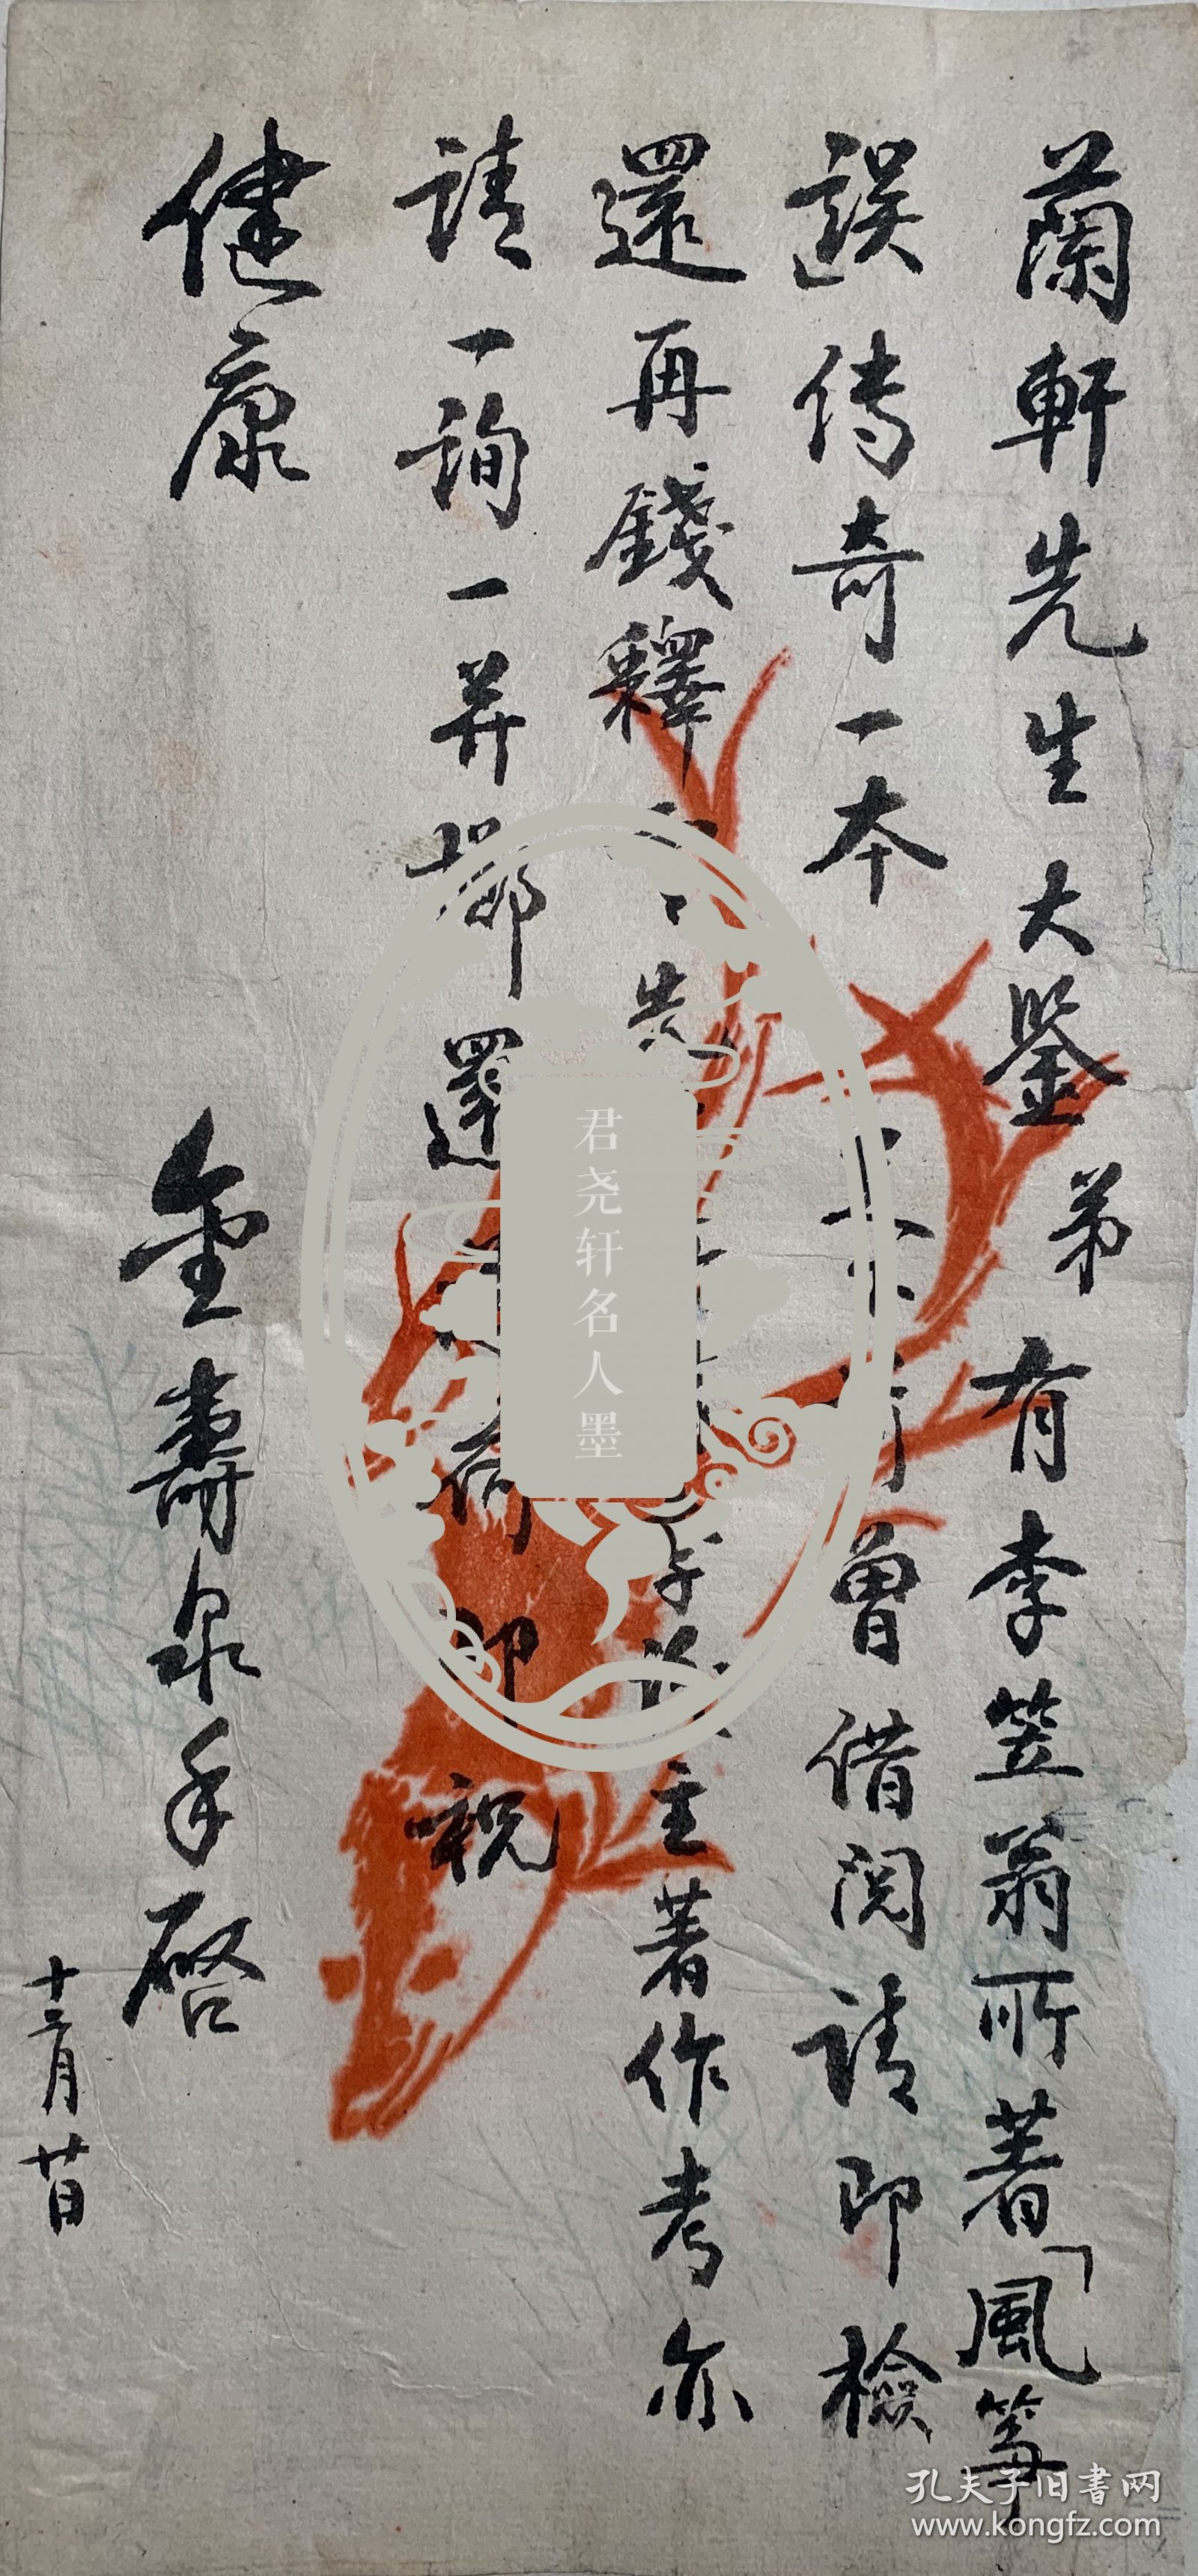 蘭軒先生大鑒 弟 有李笠翁所著「風箏
誤」传奇一本 曾借閱請即檢
還再錢釋 先 主著作考亦
請一詢一并擲還 荷 即祝
健康
金壽泉手啓
十二月廿日
君尧轩名人墨
孔夫子旧書网
www.kongfz.com